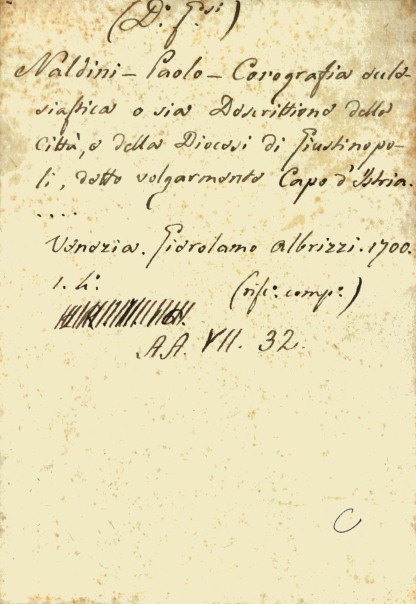 (D. G.si)
Naldini - Paolo - Corografia eccle-
siastica o sia Descrittione della
città, e della Diocesi di Giustinopo-
li, detto volgarmente Capo d'Istria.
....
Venezia. Gierolamo Albrizzi. 1700.
1. 4.° (risc. comp.)
AA. VII. 32.
C